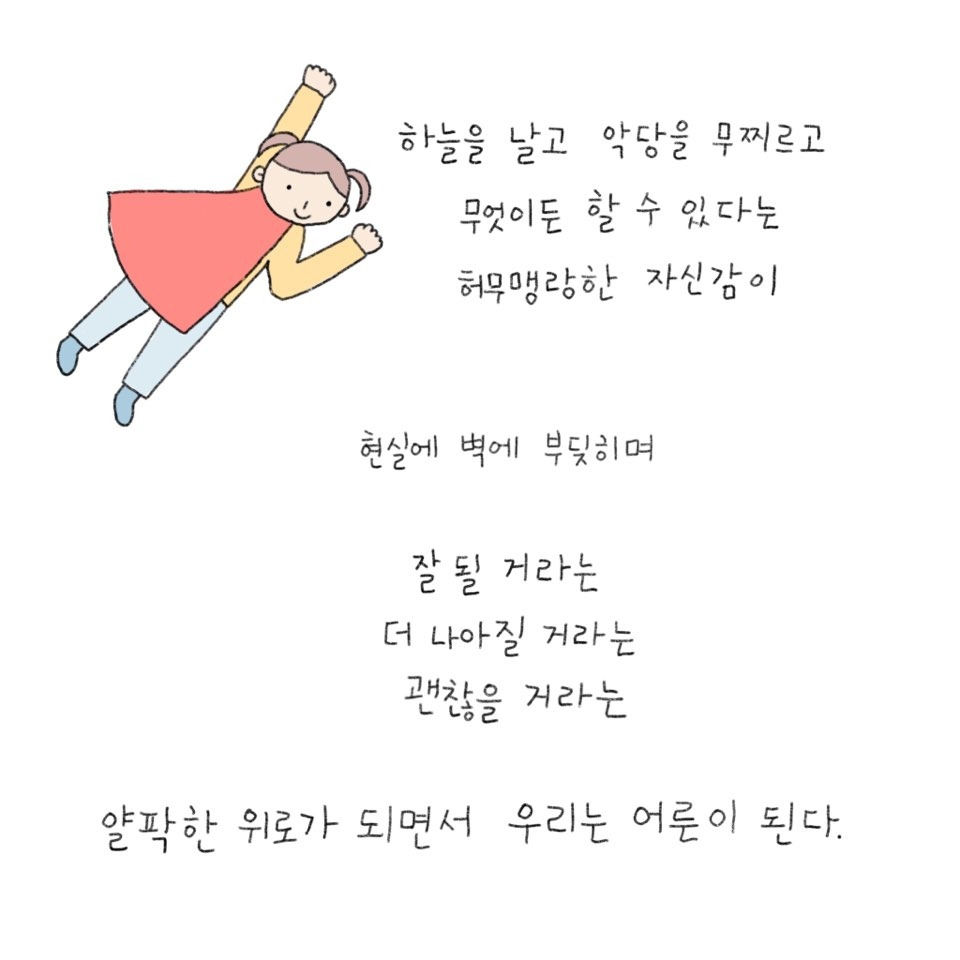 하늘을 날고 악당을 무찌르고
무엇이든 할 수 있다는
허무맹랑한 자신감이
현실에 벽에 부딪히며
잘 될 거라는
더 나아질 거라는
괜찮을 거라는
얄팍한 위로가 되면서 우리는 어른이 된다.